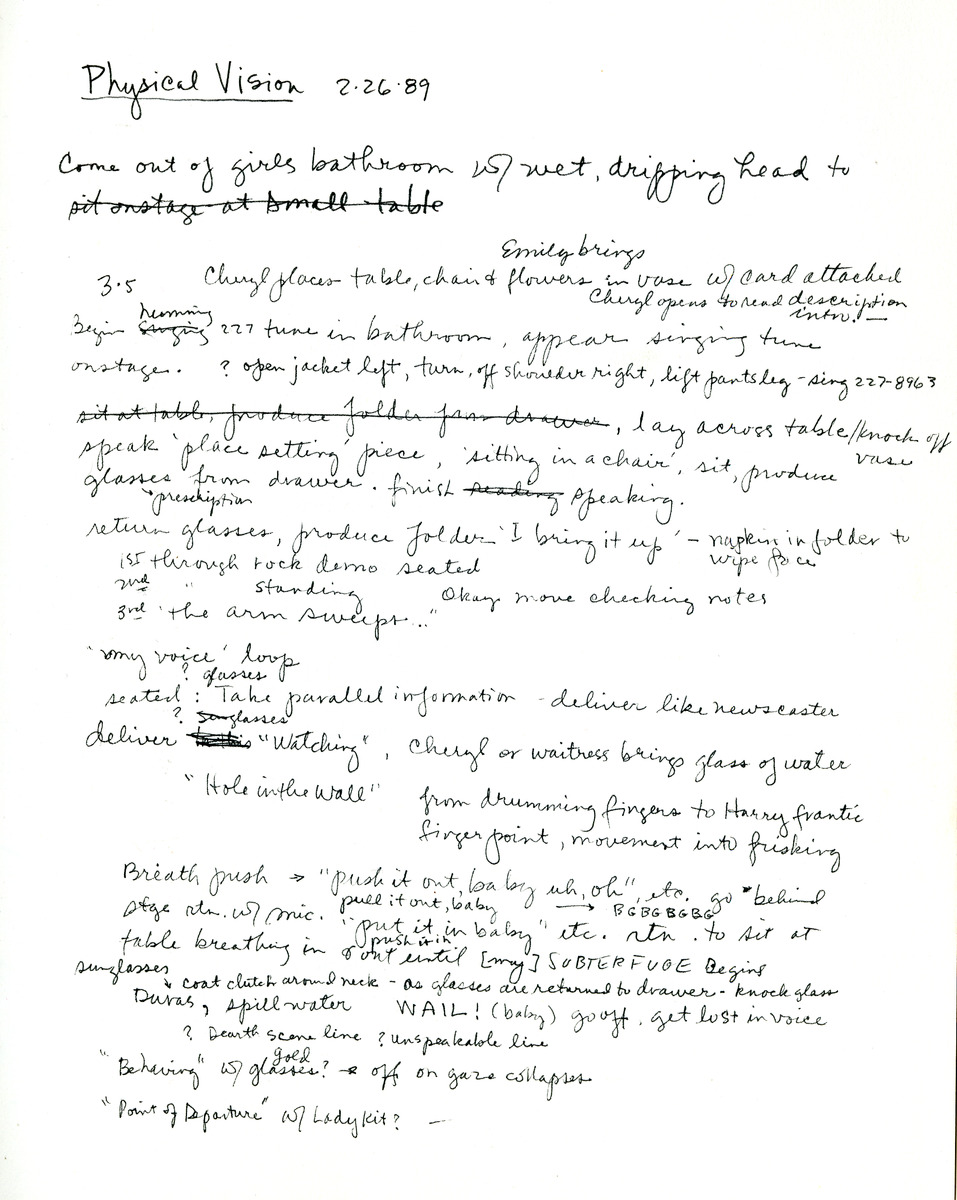 Physical Vision 2·26·89
Come out of girls bathroom w/ wet, dripping head to
sit onstage at small table
Emily brings
3.5 Cheryl places table, chair & flowers in vase w/ card attached
Cheryl opens to read description
intro. —
humming
Begin singing 227 tune in bathroom, appear singing tune
onstage. ? open jacket left, turn, off shoulder right, lift pants leg - sing 227-8963
sit at table, produce folder from drawer, lay across table/knock off
vase
speak 'place setting' piece, 'sitting in a chair', sit, produce
glasses from drawer. finish reading speaking.
prescription
return glasses, produce folder 'I bring it up' - napkin in folder to
wipe face
1st through rock demo seated
2nd " standing Okay move checking notes
3rd 'the arm sweeps..."
'my voice' loop
? glasses
seated : Take parallel information - deliver like newscaster
? sunglasses
deliver "Watching", Cheryl or waitress brings glass of water
"Hole in the Wall" from drumming fingers to Harry frantic
finger point, movement into frisking
Breath push → "push it out, baby uh, oh", etc. go behind
pull it out, baby → BGBGBGBG
stge rtn. w/ mic. "put it in baby" etc. rtn. to sit at
push it in
table breathing in & out until [my] SUBTERFUGE Begins
sunglasses
coat clutch around neck - as glasses are returned to drawer - knock glass
Duras, spill water WAIL! (baby) go off, get lost in voice
? Dearth scene line ? unspeakable line
gold
"Behaving" w/ glasses? off on gaze collapses
"Point of Departure" w/ Lady Kit? —